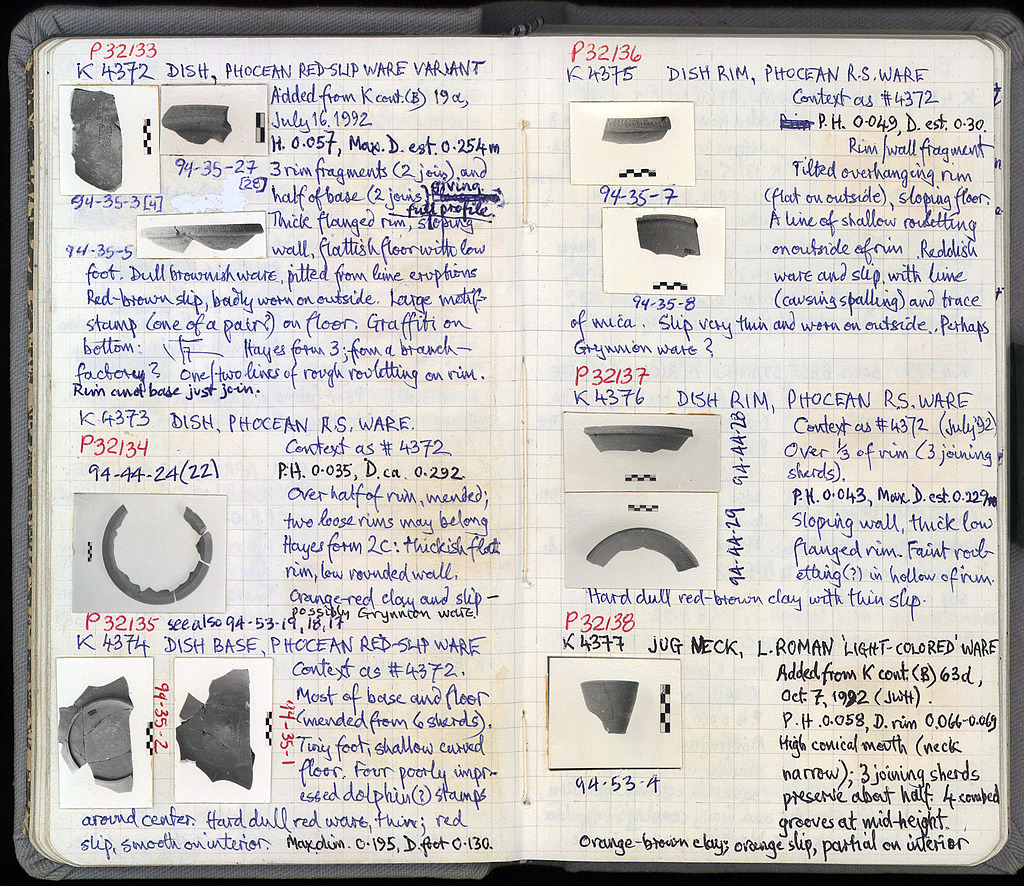 P32133
K 4372 DISH, PHOCEAN RED-SLIP WARE VARIANT
Added from K cont. (B) 19 α,
July 16. 1992
H. 0.057, Max. D. est. 0.254m
94-35-27
[28]
94-35-3[4]
3 rim fragments (2 join), and
half of base (2 joins) giving
full profile.
Thick flanged rim, sloping
94-35-5
wall, flattish floor with low
foot. Dull brownish ware, pitted from lime eruptions
Red-brown slip, badly worn on outside. Large motif-
stamp (one of a pair?) on floor. Graffiti on
bottom: Hayes form 3; from a branch-
factory? One/two lines of rough rouletting on rim.
Rim and base just join.
K 4373 DISH, PHOCEAN R.S. WARE.
P32134
Context as #4372
94-44-24(22)
P.H. 0.035, D. ca. 0.292.
Over half of rim, mended;
two loose rims may belong
Hayes form 2C: thickish flat
rim, low rounded wall.
Orange-red clay and slip –
possibly Grynnion ware.
P32135 see also 94-53-19, 18, 17
K 4374 DISH BASE, PHOCEAN RED-SLIP WARE
Context as #4372.
Most of base and floor
(mended from 6 sherds).
94-35-2
94-35-1
Tiny foot, shallow curved
floor. Four poorly impr-
essed dolphin(?) stamps
around center. Hard dull red ware, thin; red
slip, smooth on interior. Max dim. 0.195, D. foot 0.130.
P32136
K 4375 DISH RIM, PHOCEAN R.S. WARE
Context as #4372
P.H. 0.049, D. est. 0.30.
Rim/wall fragment
94-35-7
Tilted overhanging rim
(flat on outside), sloping floor.
A line of shallow rouletting
on outside of rim. Reddish
ware and slip, with lime
94-35-8
(causing spalling) and trace
of mica. Slip very thin and worn on outside. Perhaps
Grynnion ware?
P32137
K 4376 DISH RIM, PHOCEAN R.S. WARE
Context as #4372 (July '92)
Over 1/3 of rim (3 joining
sherds).
94-44-28
P.H. 0.043, Max. D. est. 0.229m
94-44-29
Sloping wall, thick low
flanged rim. Faint roul-
etting(?) in hollow of rim.
Hard dull red-brown clay with thin slip.
P32138
K 4377 JUG NECK, L. ROMAN 'LIGHT-COLORED' WARE
Added from K cont. (B) 63d,
Oct 7, 1992 (JWH).
P.H. 0.058, D. rim 0.066-0.069
High conical mouth (neck
narrow); 3 joining sherds
94-53-4
preserve about half. 4 combed
grooves at mid-height.
Orange-brown clay; orange slip, partial on interior